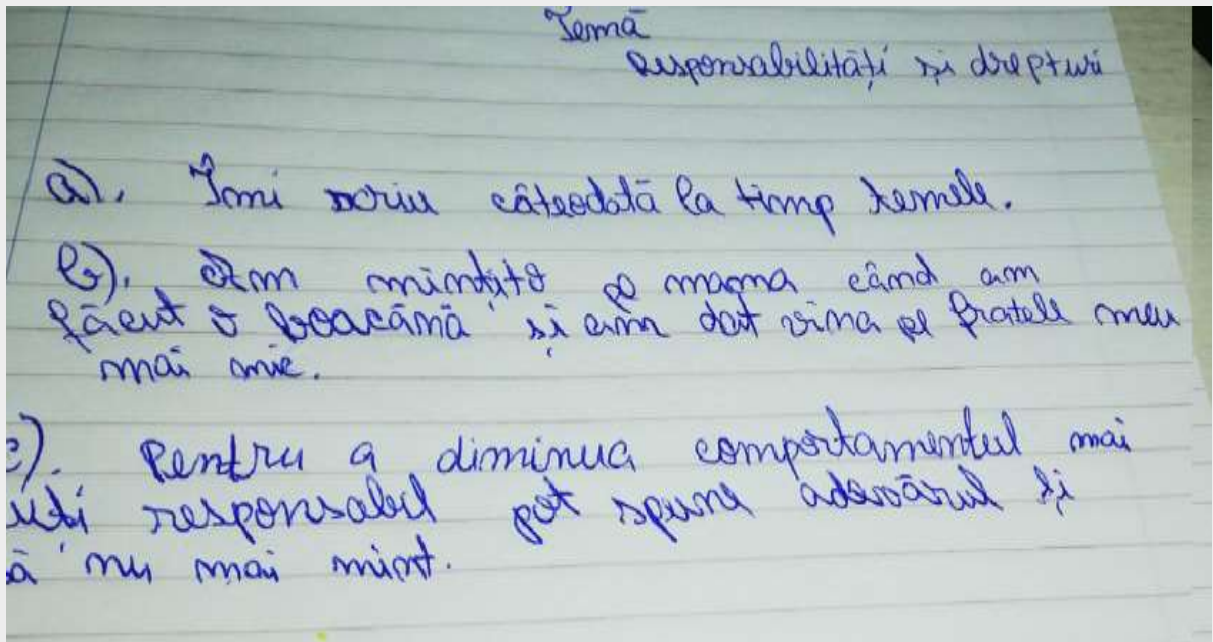 Temă
Responsabilități și drepturi
a). Imi scriu câteodată la timp temele.
b). Am mințito pe mama când am
făcut o boacănă și am dat vina pe fratele meu
mai mic.
c). Pentru a diminua comportamentul mai
uți responsabil pot spune adevărul și
ă nu mai mint.